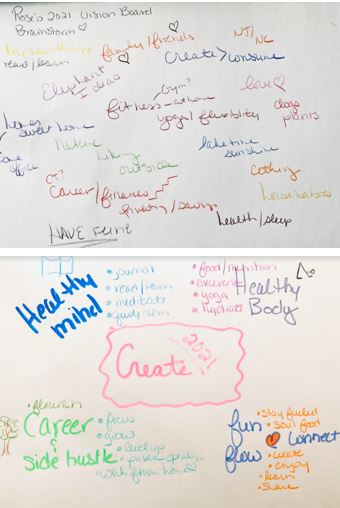 Rose's 2021 Vision Board
Brainstorm
family/friends
NJ/NC
read/learn
Create > consume
Elephant
ideas
love
Gym?
fitness - at home
yoga/flexibility
dogs
plants
home sweet home
office
nature
hiking
outside
lake time
sunshine
career/finances
investing/saving
health/sleep
HAVE FUN!
Healthy
mind
• journal
• read/learn
• meditate
• food/nutrition
• exercise
• yoga
• hydrate
Healthy
Body
Create
2021
• flourish
Career
&
side hustle
• focus
• grow
• level up
• public speaking
• work from home
fun
flow
connect
• stay fueled
• soul food
• create
• enjoy
• learn
• share